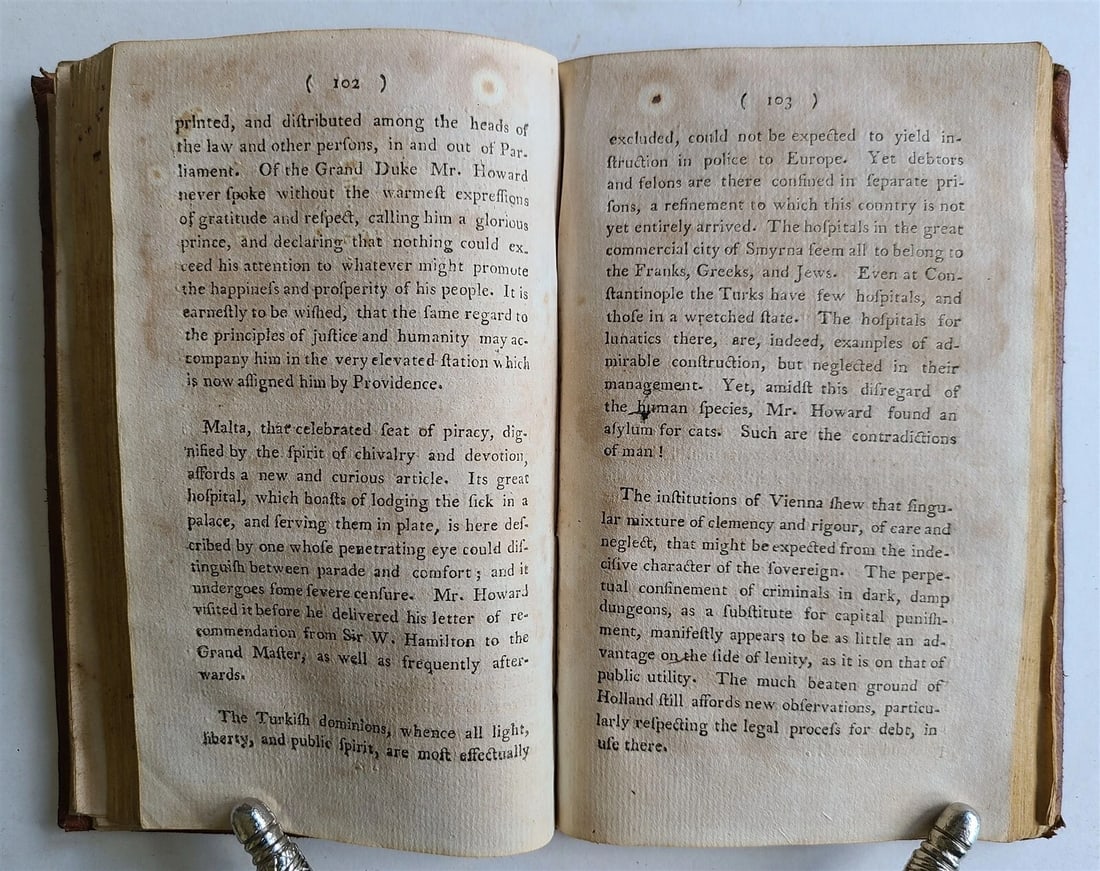 ( 102 )
printed, and diſtributed among the heads of
the law and other perſons, in and out of Par-
liament. Of the Grand Duke Mr. Howard
never ſpoke without the warmeſt expreſſions
of gratitude and reſpect, calling him a glorious
prince, and declaring that nothing could ex-
ceed his attention to whatever might promote
the happineſs and proſperity of his people. It is
earneſtly to be wiſhed, that the ſame regard to
the principles of juſtice and humanity may ac-
company him in the very elevated ſtation which
is now aſſigned him by Providence.
Malta, that celebrated ſeat of piracy, dig-
nified by the ſpirit of chivalry and devotion,
affords a new and curious article. Its great
hoſpital, which boaſts of lodging the ſick in a
palace, and ſerving them in plate, is here deſ-
cribed by one whoſe penetrating eye could diſ-
tinguiſh between parade and comfort; and it
undergoes ſome ſevere cenſure. Mr. Howard
viſited it before he delivered his letter of re-
commendation from Sir W. Hamilton to the
Grand Maſter, as well as frequently after-
wards.
The Turkiſh dominions, whence all light,
liberty, and public ſpirit, are moſt effectually
( 103 )
excluded, could not be expected to yield in-
ſtruction in police to Europe. Yet debtors
and felons are there confined in ſeparate pri-
ſons, a refinement to which this country is not
yet entirely arrived. The hoſpitals in the great
commercial city of Smyrna ſeem all to belong to
the Franks, Greeks, and Jews. Even at Con-
ſtantinople the Turks have few hoſpitals, and
thoſe in a wretched ſtate. The hoſpitals for
lunatics there, are, indeed, examples of ad-
mirable conſtruction, but neglected in their
management. Yet, amidſt this diſregard of
the human ſpecies, Mr. Howard found an
aſylum for cats. Such are the contradictions
of man!
The inſtitutions of Vienna ſhew that ſingu-
lar mixture of clemency and rigour, of care and
neglect, that might be expected from the inde-
ciſive character of the ſovereign. The perpe-
tual confinement of criminals in dark, damp
dungeons, as a ſubſtitute for capital puniſh-
ment, manifeſtly appears to be as little an ad-
vantage on the ſide of lenity, as it is on that of
public utility. The much beaten ground of
Holland ſtill affords new obſervations, particu-
larly reſpecting the legal proceſs for debt, in
uſe there.